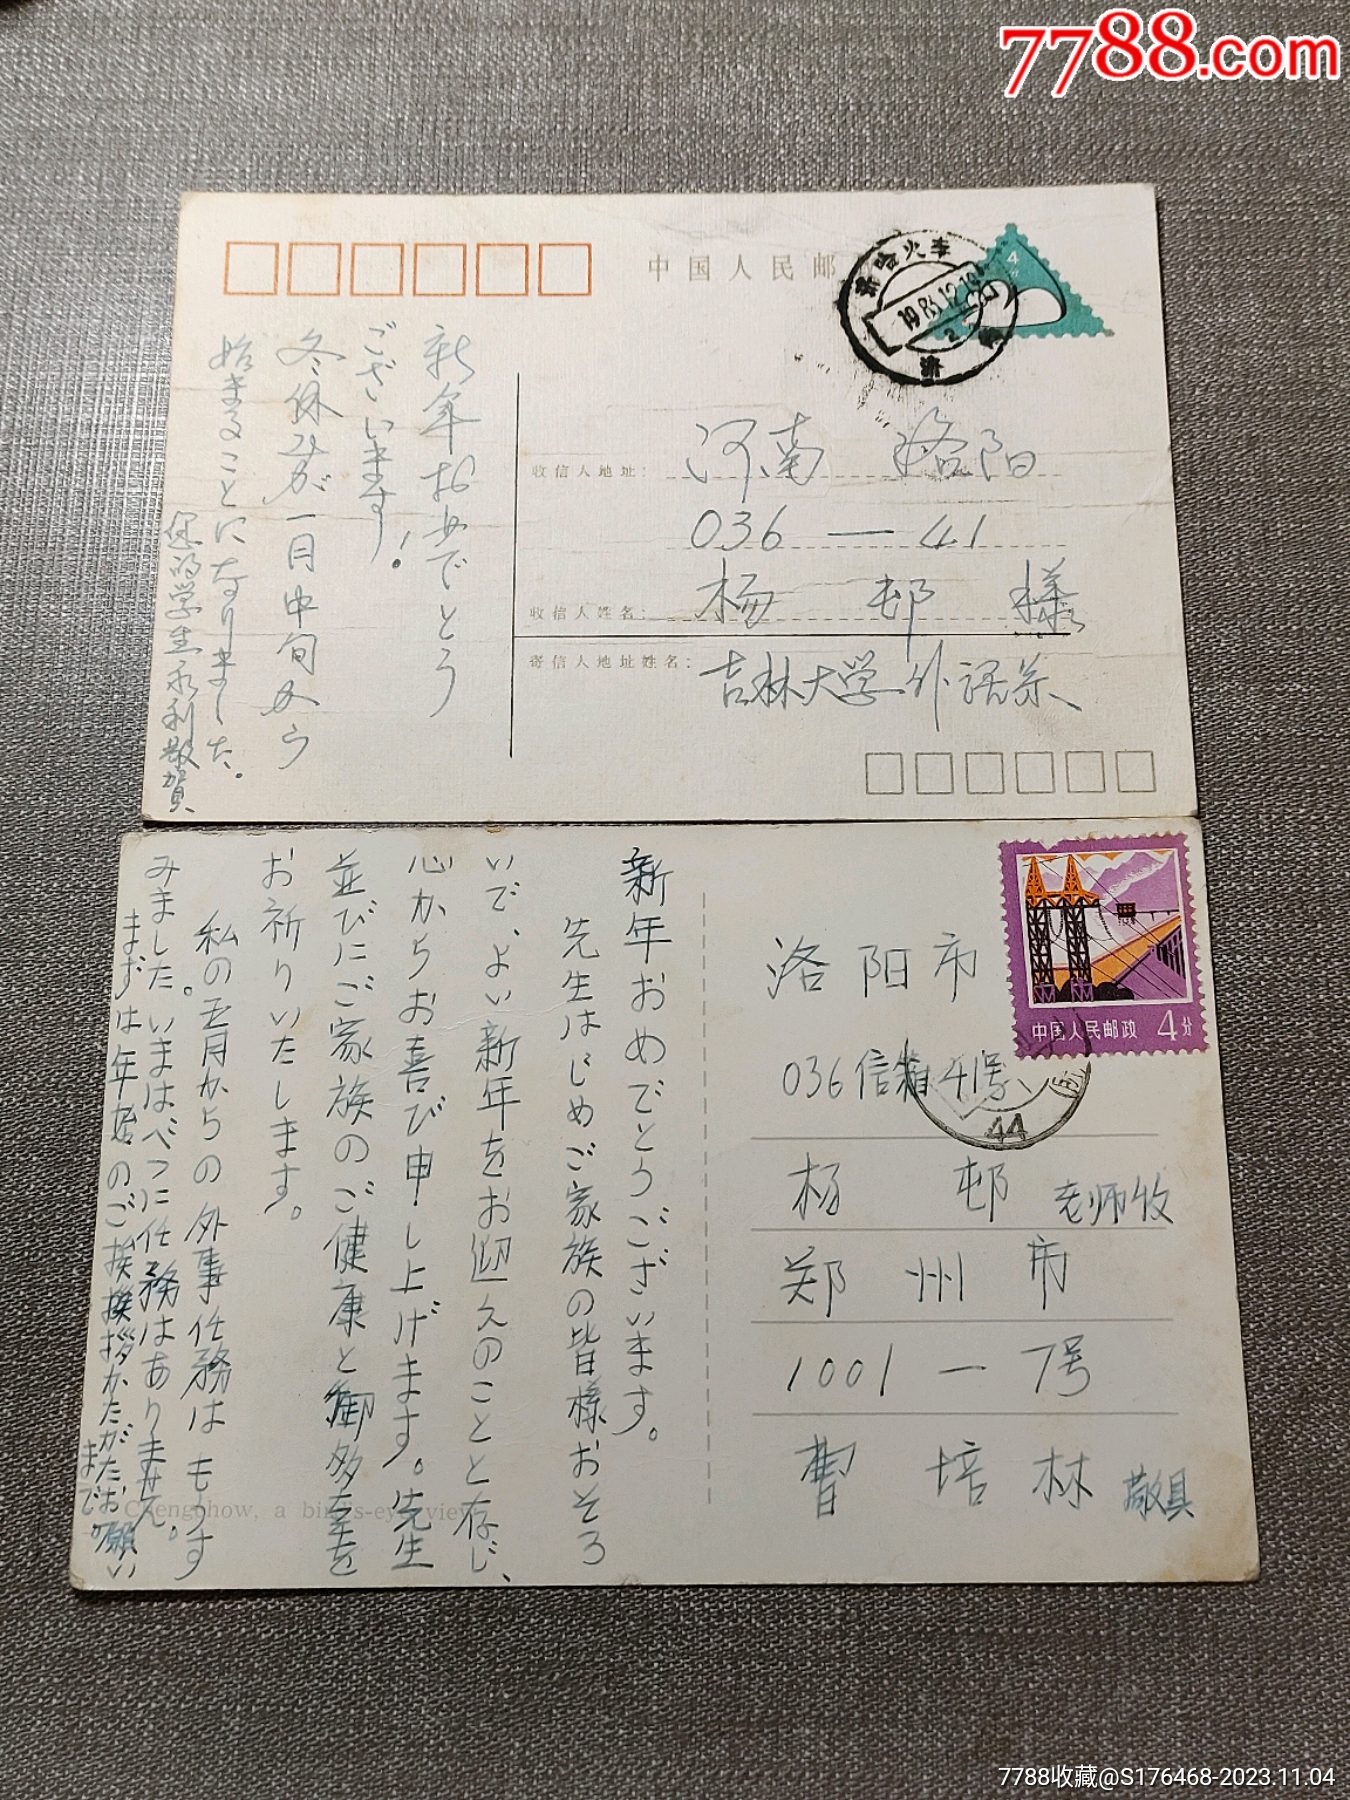 7788.com
中国人民邮
4
分
新年おめでとう
ございます!
冬休みが一月中旬から
始まることになりました。
您的学生永利敬贺
收信人地址:
河南 洛阳
036—41
收信人姓名:
杨 邨 様
寄信人地址姓名:
吉林大学外语系
中国人民邮政 4分
44
新年おめでとうございます。
先生はじめご家族の皆様おそろ
いで、よい新年をお迎えのことと存じ、
心からお喜び申し上げます。先生
並びにご家族のご健康と御多幸を
お祈りいたします。
私の五月からの外事任務はもうす
みました。いまはべつに任務はありません。
まずは年始のご挨拶かたがたお願い
まで。
洛阳市
036信箱41号
杨 邨 老师收
郑州市
1001—7号
曹培林 敬具
Chengchow, a bird's-eye view
7788收藏@S176468-2023.11.04